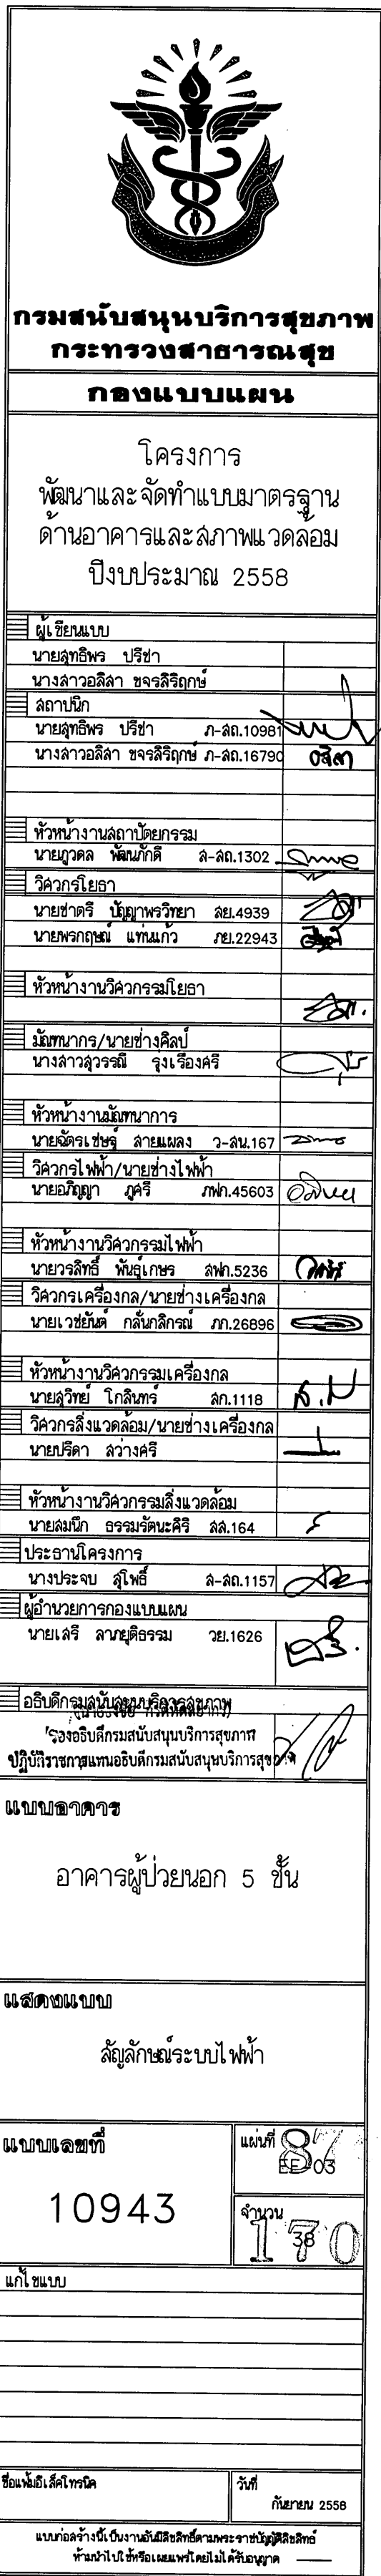 กรมสนับสนุนบริการสุขภาพ
กระทรวงสาธารณสุข
กองแบบแผน
โครงการ
พัฒนาและจัดทำแบบมาตรฐาน
ด้านอาคารและสภาพแวดล้อม
ปีงบประมาณ 2558
ผู้เขียนแบบ
นายสุทธิพร ปรีชา
นางสาวอลิสา ขจรสิริฤกษ์
สถาปนิก
นายสุทธิพร ปรีชา ภ-สถ.10981
นางสาวอลิสา ขจรสิริฤกษ์ ภ-สถ.16790
หัวหน้างานสถาปัตยกรรม
นายภูวดล พัฒนภักดี ส-สถ.1302
วิศวกรโยธา
นายชาตรี ปัญญาพรวิทยา สย.4939
นายพรกฤษณ์ แท่นแก้ว ภย.22943
หัวหน้างานวิศวกรรมโยธา
มัณฑนากร/นายช่างศิลป์
นางสาวสุวรรณี รุ่งเรืองศรี
หัวหน้างานมัณฑนาการ
นายฉัตรเชษฐ์ สายแผลง ว-สน.167
วิศวกรไฟฟ้า/นายช่างไฟฟ้า
นายอภิญญา ภูศรี ภฟก.45603
หัวหน้างานวิศวกรรมไฟฟ้า
นายวรสิทธิ์ พันธุ์เกษร สฟก.5236
วิศวกรเครื่องกล/นายช่างเครื่องกล
นายเวชยันต์ กลั่นกลิกรณ์ ภก.26896
หัวหน้างานวิศวกรรมเครื่องกล
นายสุวิทย์ โกสินทร์ สก.1118
วิศวกรสิ่งแวดล้อม/นายช่างเครื่องกล
นายปรีดา สว่างศรี
หัวหน้างานวิศวกรรมสิ่งแวดล้อม
นายสมนึก ธรรมรัตนะศิริ สส.164
ประธานโครงการ
นางประจบ สุโพธิ์ ส-สถ.1157
ผู้อำนวยการกองแบบแผน
นายเสรี ลาภยุติธรรม วย.1626
อธิบดีกรมสนับสนุนบริการสุขภาพ
รองอธิบดีกรมสนับสนุนบริการสุขภาพ
ปฏิบัติราชการแทนอธิบดีกรมสนับสนุนบริการสุขภาพ
แบบอาคาร
อาคารผู้ป่วยนอก 5 ชั้น
แสดงแบบ
สัญลักษณ์ระบบไฟฟ้า
แบบเลขที่
10943
แผ่นที่ 87
EE-03
จำนวน
38
170
แก้ไขแบบ
ชื่อแฟ้มอิเล็คโทรนิค
วันที่
กันยายน 2558
แบบก่อสร้างนี้เป็นงานอันมีลิขสิทธิ์ตามพระราชบัญญัติลิขสิทธิ์
ห้ามนำไปใช้หรือเผยแพร่โดยไม่ได้รับอนุญาต